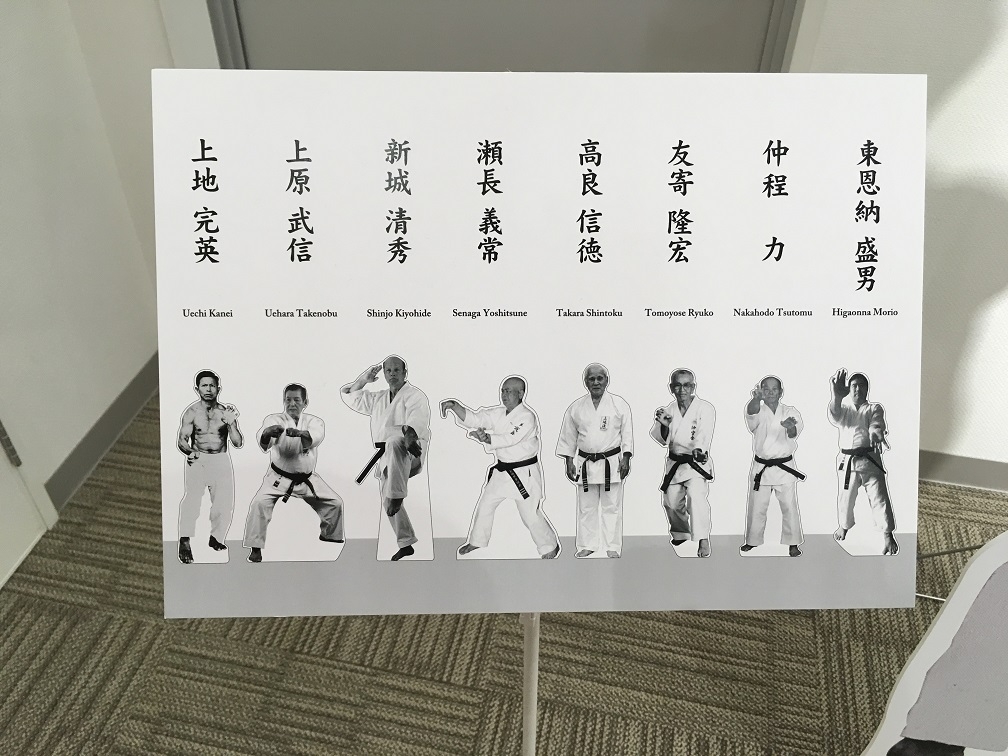 上地 完英
上原 武信
新城 清秀
瀬長 義常
高良 信徳
友寄 隆宏
仲程 力
東恩納 盛男
Uechi Kanei
Uehara Takenobu
Shinjo Kiyohide
Senaga Yoshitsune
Takara Shintoku
Tomoyose Ryuko
Nakahodo Tsutomu
Higaonna Morio